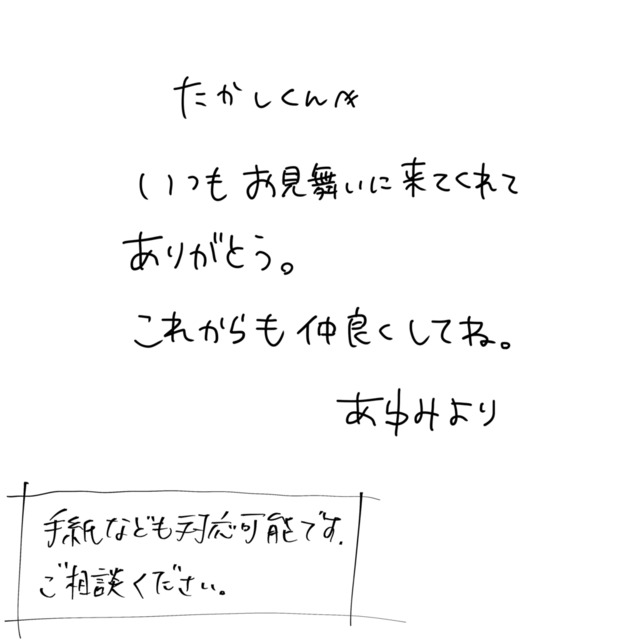 たかしくんへ
いつもお見舞いに来てくれて
ありがとう。
これからも仲良くしてね。
あゆみより
手紙なども対応可能です.
ご相談ください。